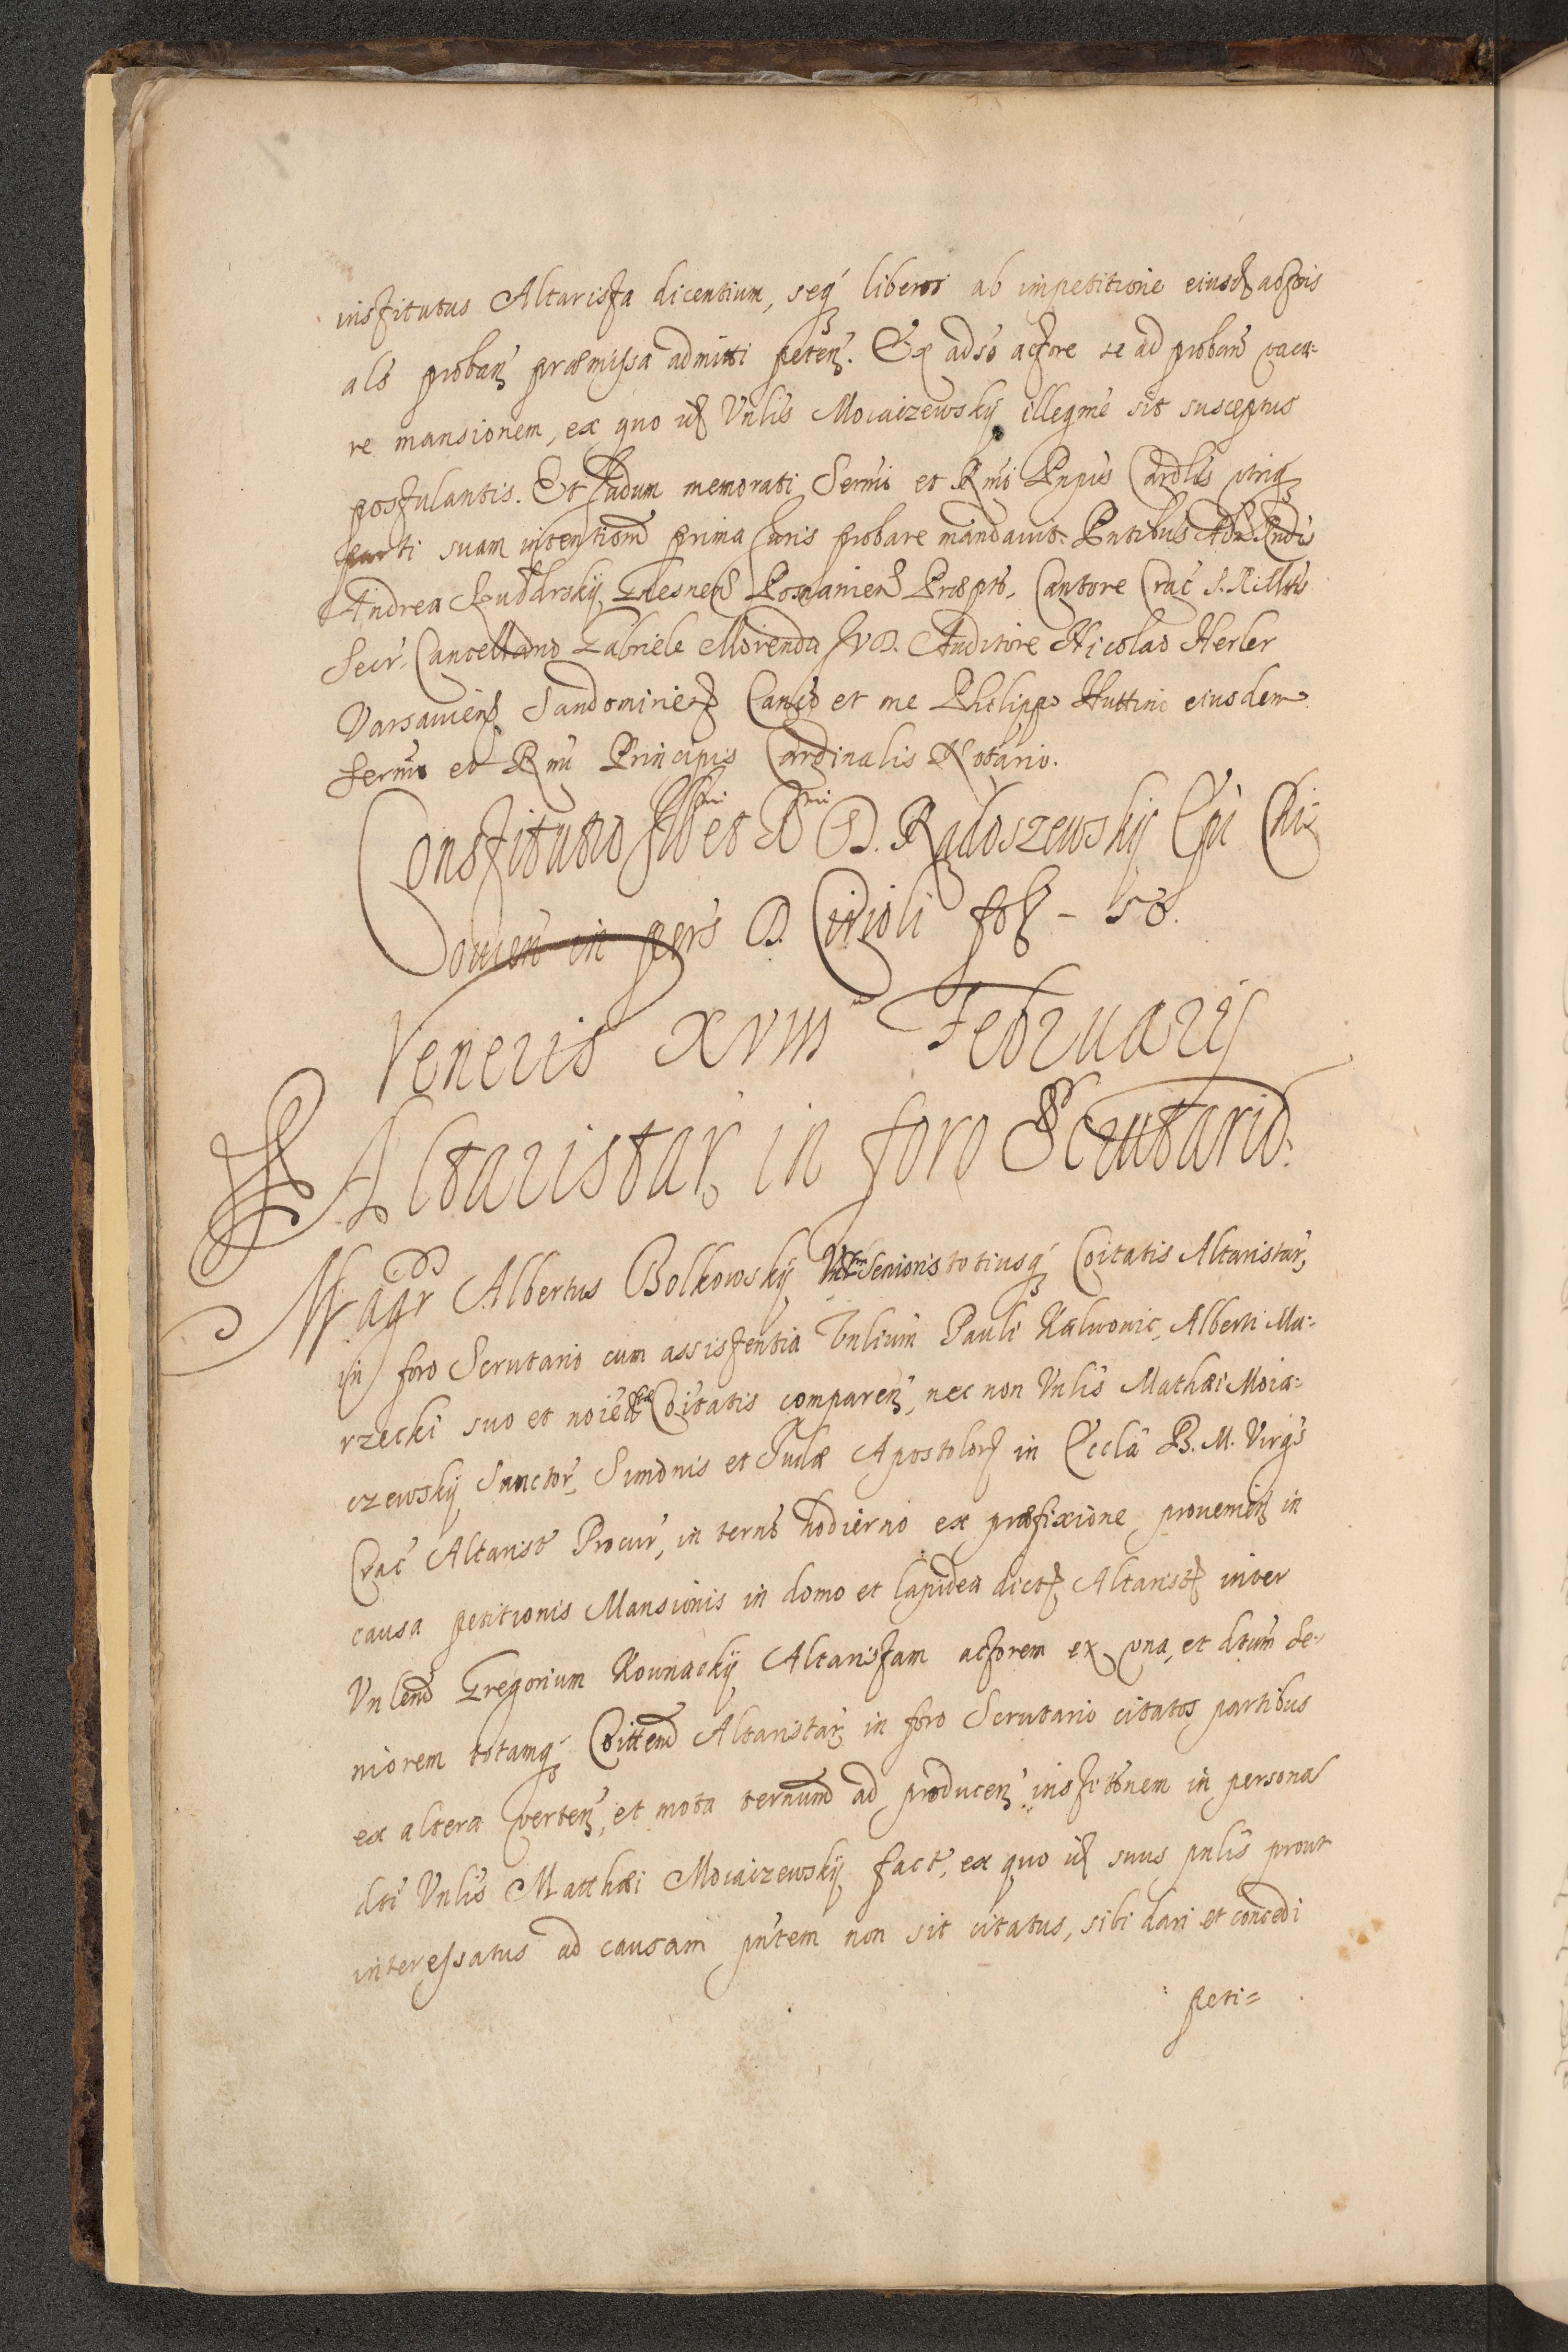 institutus Altarista dicentium, seq́ liberos ab impetitione eiusd actoris
als proban præmissa admitti peten. Ex adso actore se ad proband vaca-
re mansionem, ex quo id Vnlis Moiaizewskij illegme sit susceptus
postulantis. Et Iudum memorati Sermi et Rmi Pnpis Cardlis utriq
parti suam intentionē prima Iuris probare mandauit. Pntibus Adm Rndis
Andrea Gnesnen Posnanien Præpto, Cantore Crac S. R. Mtis
Secr. Cancellario Gabriele Morenda IVD. Auditore Nicolao Herler
Varsauien Sandomirien Canco et me Philippo Huttini eiusdem
Sermi et Rmi Principis Cardinalis Notario.
Constitutio Illmi et Rmi D. Radoszewskij Epi Chi-
ouien in pers D. Cirioli fol - 58.
Veneris XVIII Februarij
Altaristar in foro Scrutario.
Magr Albertus Bolkowskij Senioris totiusq́ Coitatis Altaristar,
in foro Scrutario cum assistentia Vnlium Pauli Kalwonic, Alberti Ma-
rzecki suo et noie Coitatis comparen, nec non Vnlis Mathæi Moia-
czewskij Sanctor. Simonis et Iudæ Apostolor in Eccla B. M. Virgs
Crac Altarist Procur, in terno hodierno ex præfixione prouenien in
causa petitionis Mansionis in domo et lapidea dict Altarist inter
Vnlem Gregorium Rownackij Altaristam actorem ex una, et dtum Se-
niorem totamq́ Coittem Altaristar in foro Scrutario citatos partibus
ex altera verten, et mota ternum ad producen instittonem in persona
dti Vnlis Matthæi Moiaizewskij fact, ex quo id suus pnlis prout
interessatus ad causam pntem non sit citatus, sibi dari et concedi
peti=